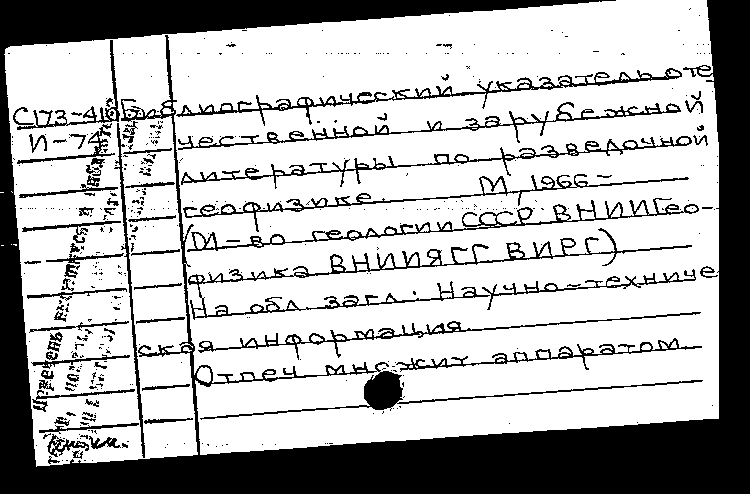 С173-416 Библиографический указатель оте
И-74 чественной и зарубежной
литературы по разведочной
геофизике. М, 1966-
(М-во геологии СССР. ВНИИГео-
физика ВНИИЯГГ ВИРГ)
На обл. загл.: Научно-техниче
ская информация.
Отпеч множит. аппаратом.
Перечень